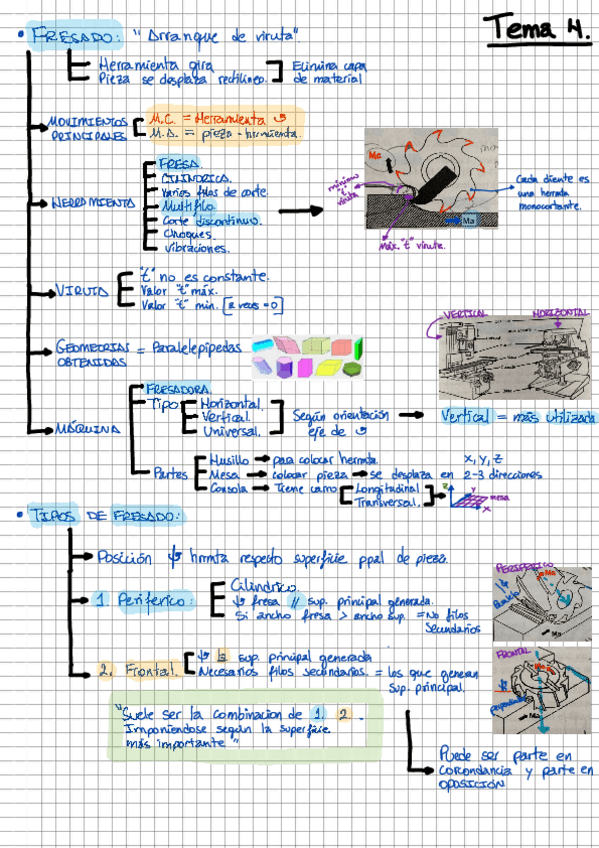 Tema 4.
• FRESADO: "Arranque de viruta".
Herramienta gira
Pieza se desplaza rectilíneo.
Elimina capa
de material
MOVIMIENTOS
PRINCIPALES
M.C. = Herramienta
M.A. = pieza - herramienta.
HERRAMIENTA
FRESA
CILINDRICA.
Varios filos de corte.
Multifilo
Corte discontinuo.
Choques.
Vibraciones.
Mc
minimo
"t"
viruta
Ma
Máx. "t" viruta.
Cada diente es
una herrmta
monocortante.
VIRUTA
"t" no es constante.
Valor "t" máx.
Valor "t" min. [a veces = 0]
GEOMETRIAS
OBTENIDAS
= Paralelepípedas
VERTICAL
HORIZONTAL
MÁQUINA
FRESADORA
Tipo
Horizontal.
Vertical.
Universal.
Según orientación
eje de
Vertical = más utilizada
Partes
Husillo → para colocar herrmta
Mesa → colocar pieza → se desplaza en 2-3 direcciones
x, y, z
Consola → Tiene carro
Longitudinal
Transversal.
z
y
x
mesa
• TIPOS DE FRESADO:
Posición hrrmta respecto superficie ppal de pieza.
1. Periferico:
Cilíndrico.
fresa // sup. principal generada.
Si ancho fresa > ancho sup. = No filos
secundarios
PERIFERICO
Mc
Ma
2. Frontal.
sup. principal generada
Necesarios filos secundarios. = los que generan
sup. principal.
FRONTAL
Mc
Ma
"Suele ser la combinacion de 1. 2.
Imponiendose según la superficie
más importante"
Puede ser parte en
concordancia y parte en
oposición